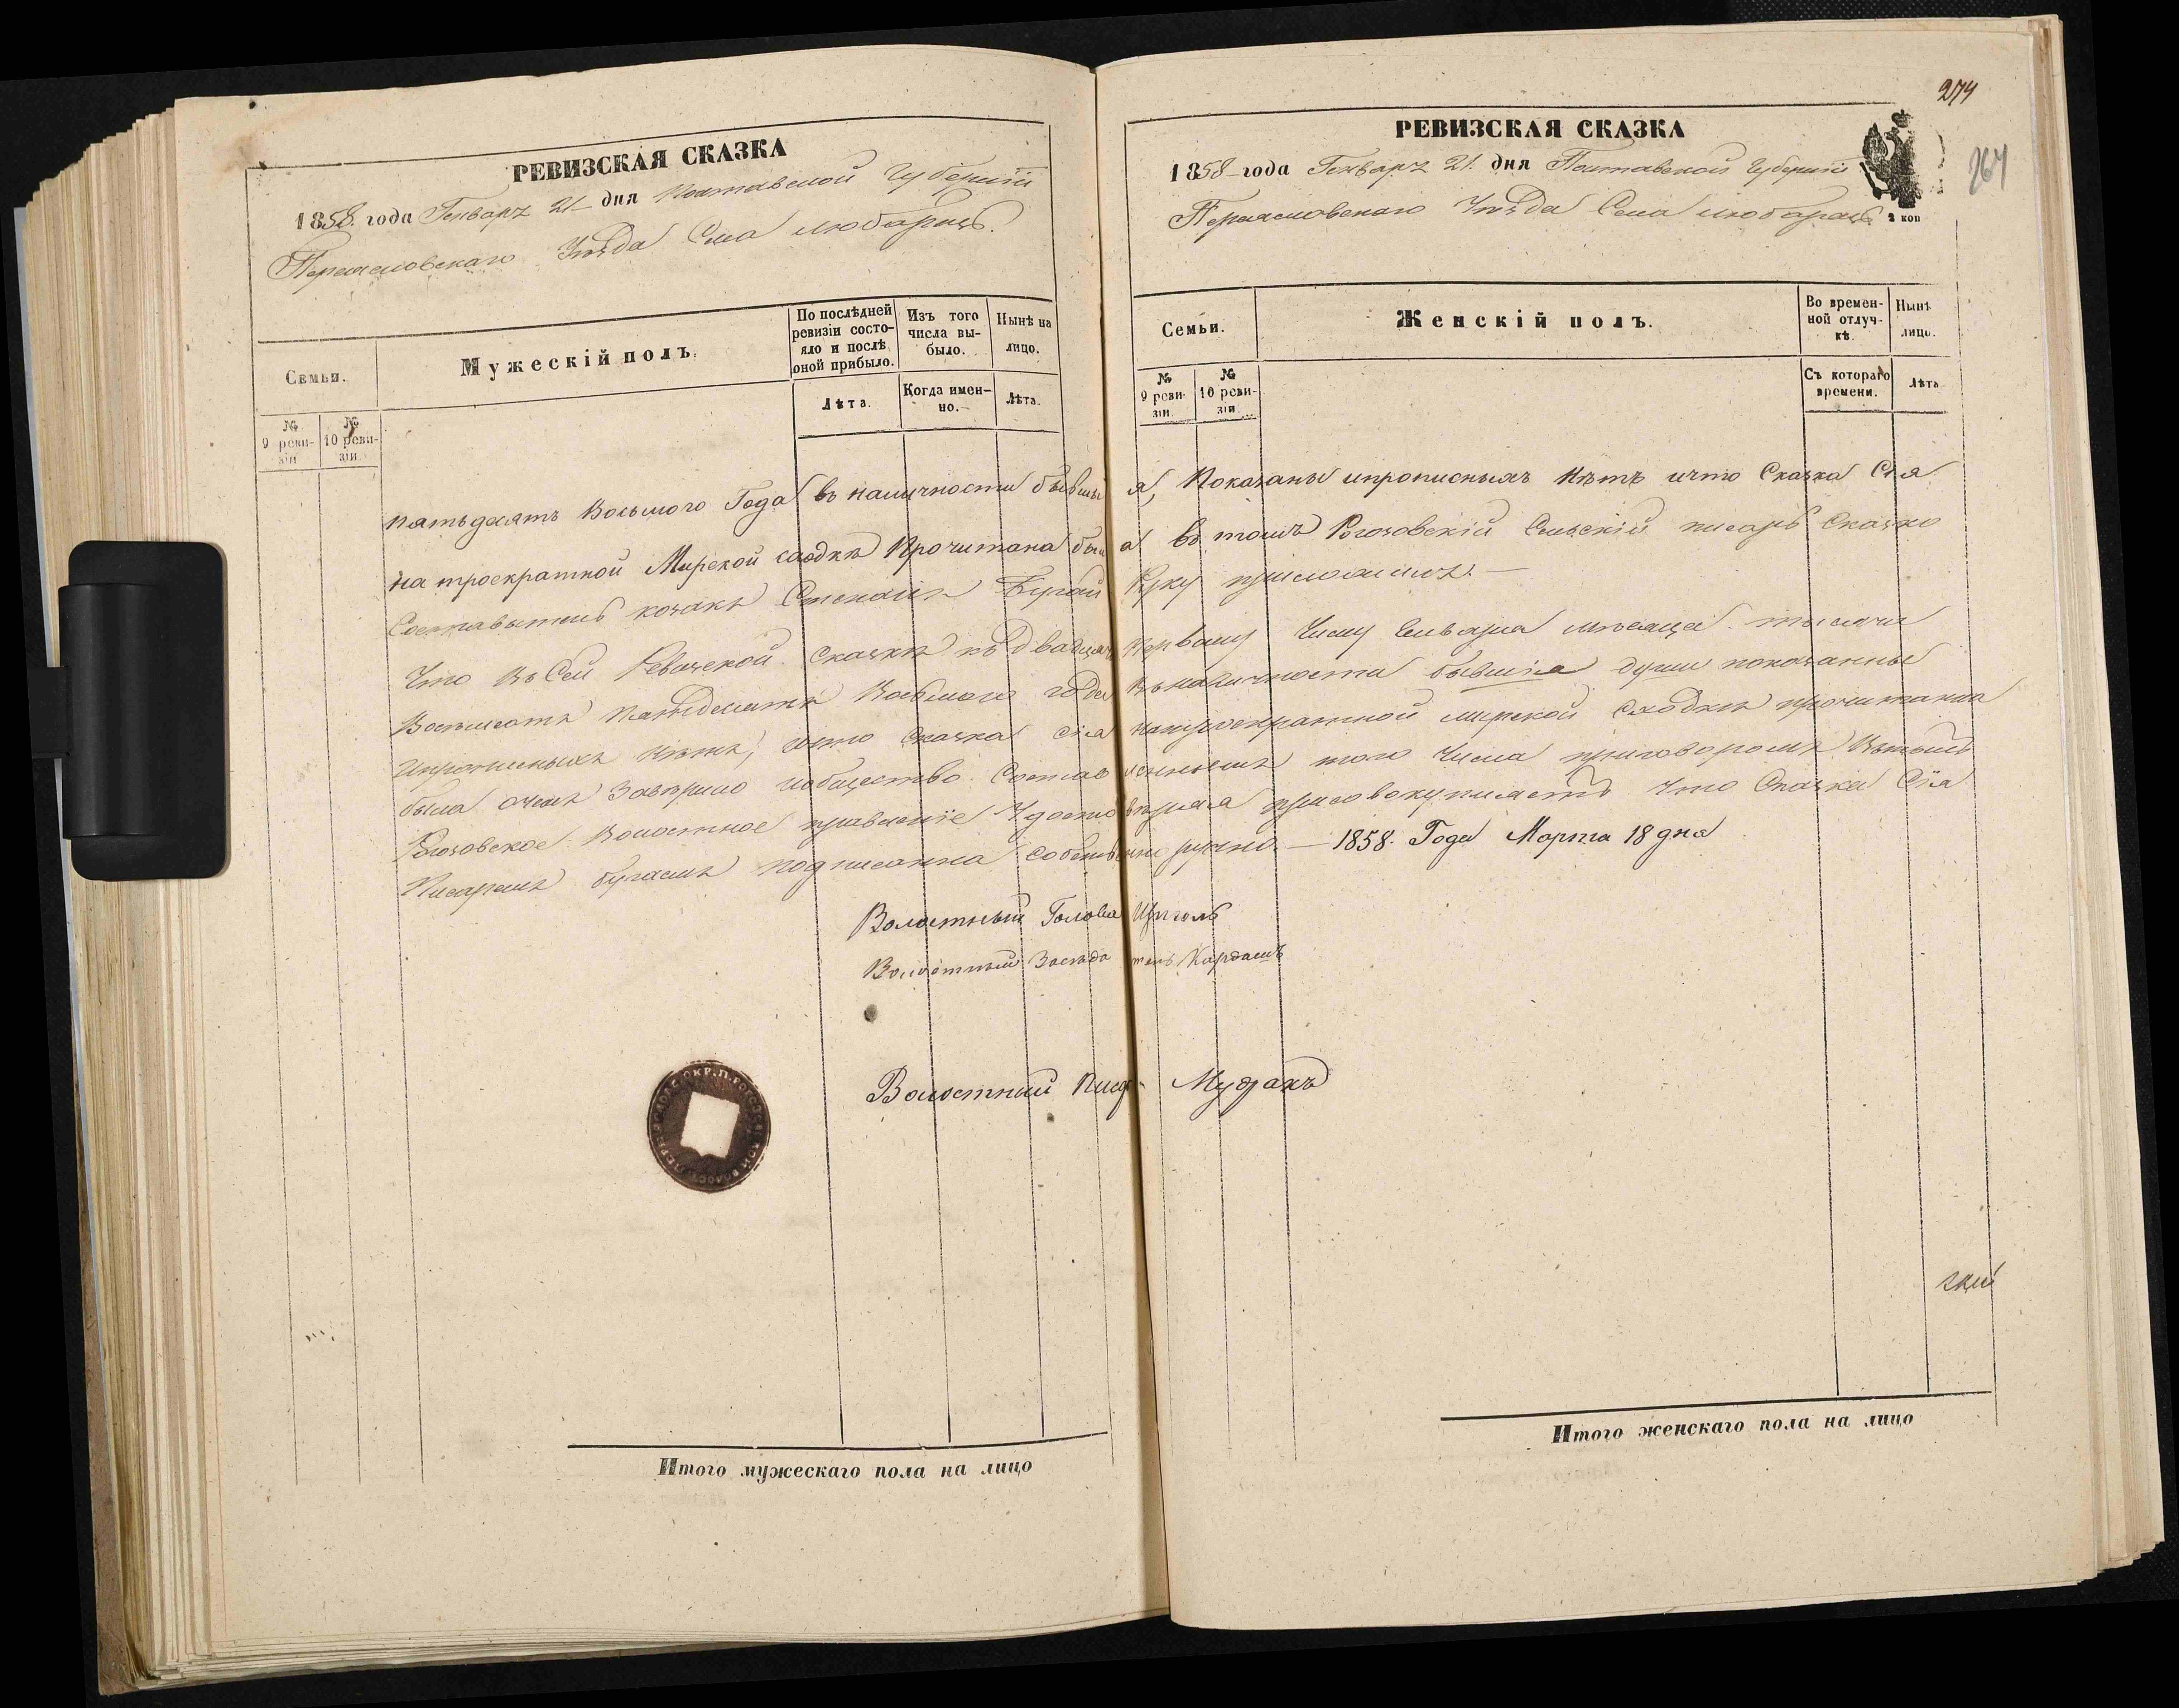 274
264
РЕВИЗСКАЯ СКАЗКА
1858 года Генваря 21 дня Полтавской Губерніи
Переяславскаго Уѣзда Села Любарецъ.
Семьи.
Мужескій полъ.
По послѣдней ревизіи состояло и послѣ оной прибыло.
Изъ того числа выбыло.
Нынѣ на лицо.
№ 9 ревизіи
№ 10 ревизіи
Лѣта.
Когда именно.
Лѣта.
РЕВИЗСКАЯ СКАЗКА
1858 года Генваря 21. дня Полтавской Губерніи
Переяславскаго Уѣзда Села Любарецъ
2 коп
Семьи.
Женскій полъ.
Во временной отлучкѣ.
Нынѣ лицо.
№ 9 ревизіи
№ 10 ревизіи
Съ котораго времени.
Лѣта
пятьдесятъ Восьмого Года въ наличности бывшыя, Показаны ипрописныхъ Нѣтъ ичто Сказка Сія
на троекратной Мирской сходкѣ Прочитана была въ томъ Рогозовскій Сельскій писарь Сказко
Составытель козакъ Степанъ Бугай Руку приложилъ. —
Что въ Сей Ревизской сказкѣ къ двадцать первому Числу Енваря мѣсяца тысяча
Восемьсотъ пятьдесятъ Восьмого года въ наличности бывшія души показанные
ипрописныхъ нѣтъ, ичто Сказка сія натроекратной мирской Сходкѣ прочитанна
была очемъ Заверило иобщество Составленнымъ того Числа приговоромъ
Рогозовское Волостное правленіе Удостовѣряя присовокупляетъ что Сказка Сія
Писаремъ бугаемъ подписанна собственноручно — 1858. Года Марта 18 дня
Волостный Голова
Волостный Засѣдатель Кардашъ
Волостный Писарь Мудракъ
Итого мужескаго пола на лицо
Итого женскаго пола на лицо